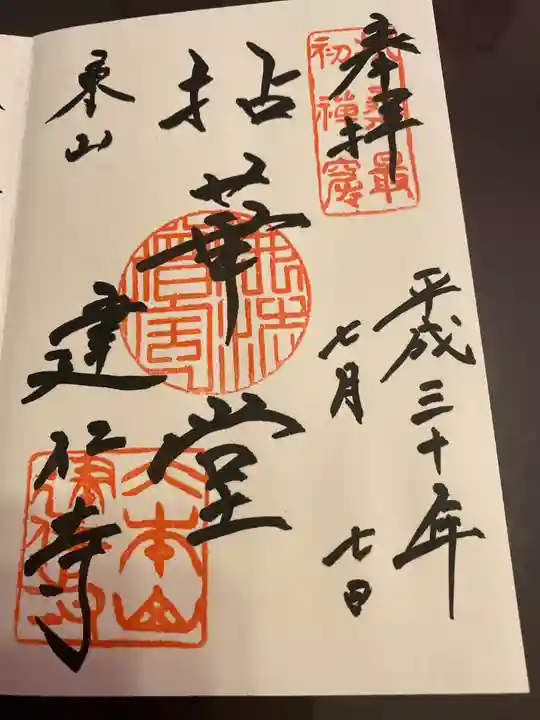 奉拝
平成三十年
七月七日
拈華堂
東山
建仁寺
大本山
建仁寺
最初禅窟